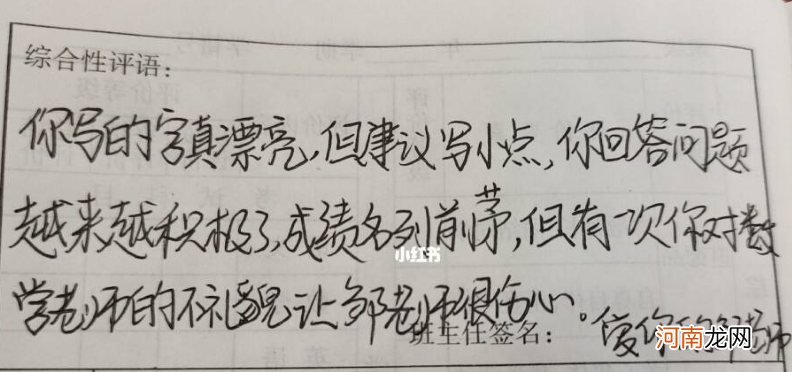 综合性评语：
你写的字真漂亮，但建议写小点，你回答问题
越来越积极了，成绩名列前茅，但有一次你对数
学老师的不礼貌让邹老师很伤心。
班主任签名： 爱你的邹老师
小红书
河南龙网